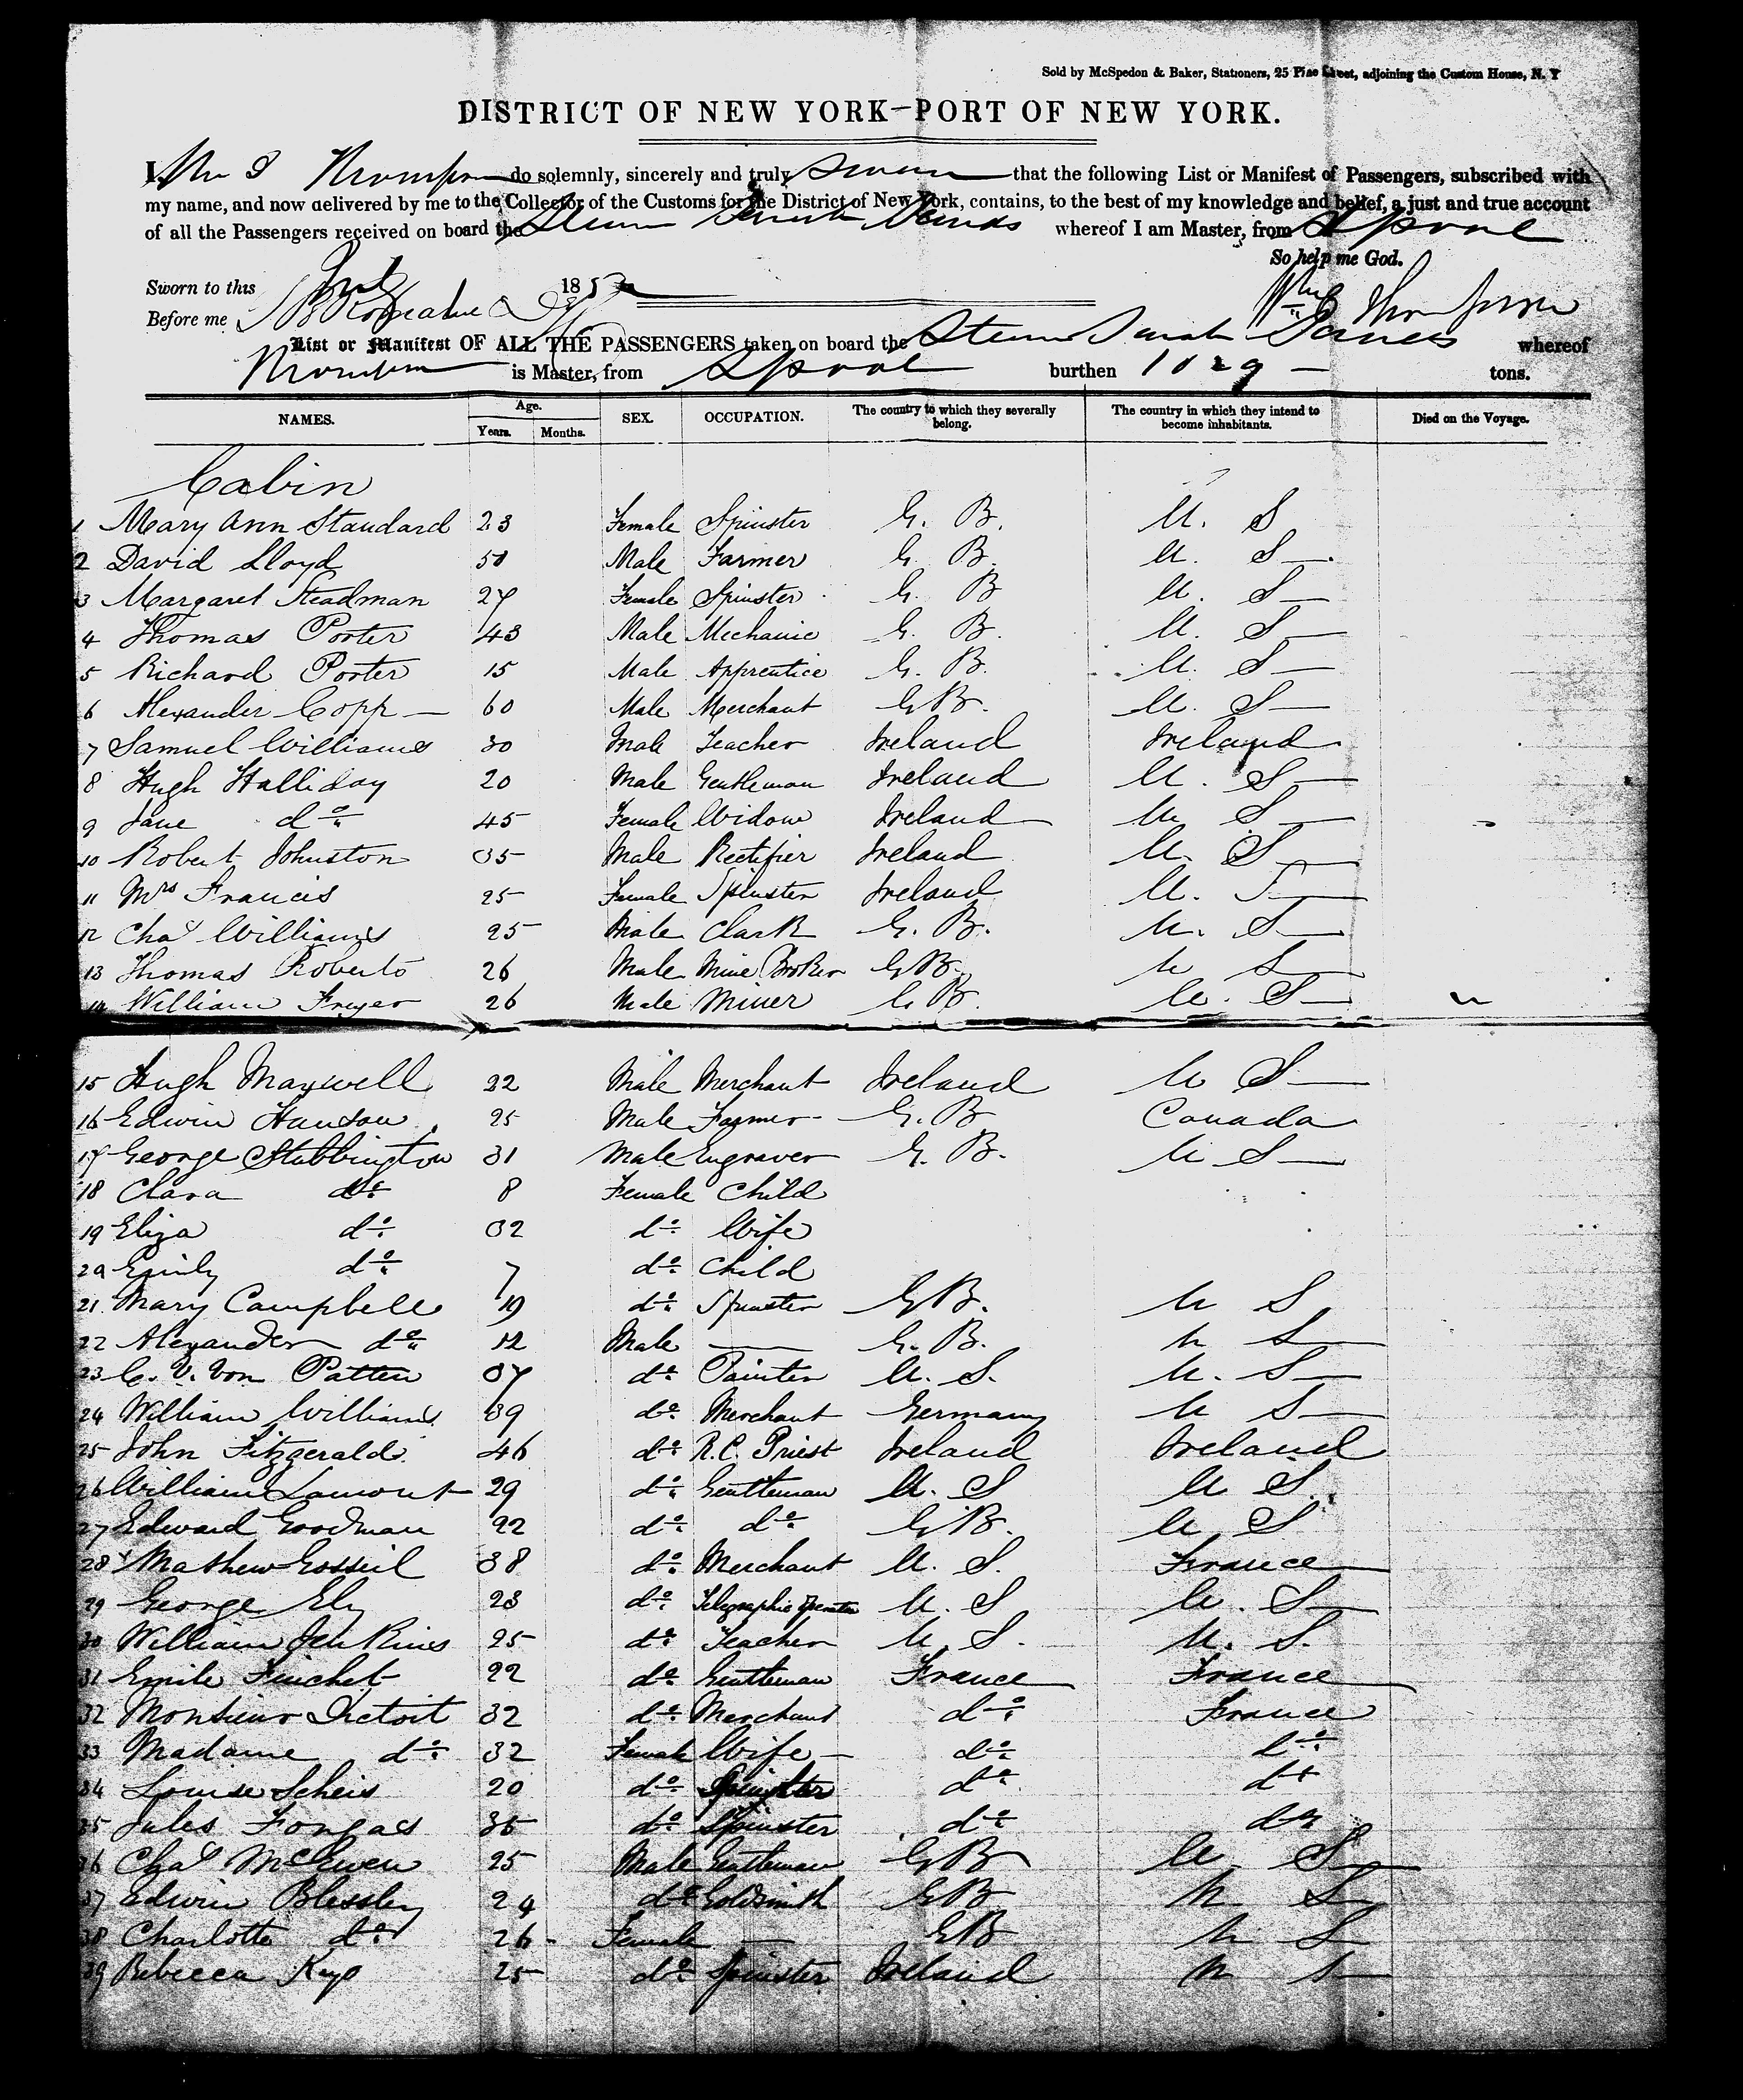 Sold by McSpedon & Baker, Stationers, 25 Pine Street, adjoining the Custom House, N. Y
DISTRICT OF NEW YORK—PORT OF NEW YORK.
I, do solemnly, sincerely and truly swear that the following List or Manifest of Passengers, subscribed with
my name, and now delivered by me to the Collector of the Customs for the District of New York, contains, to the best of my knowledge and belief, a just and true account
of all the Passengers received on board the Steam whereof I am Master, from Lpool
So help me God.
Sworn to this 185
Before me Thompson
List or Manifest OF ALL THE PASSENGERS taken on board the Steam whereof
Thompson is Master, from Lpool burthen 1029 tons.
NAMES. Age. Years. Months. SEX. OCCUPATION. The country to which they severally belong. The country in which they intend to become inhabitants. Died on the Voyage.
Cabin
1 Mary Ann Standard 23 Female Spinster G. B. U. S
2 David Lloyd 50 Male Farmer G. B. U. S
3 Margaret Steadman 27 Female Spinster G. B U. S
4 Thomas Porter 43 Male Mechanic G. B. U. S
5 Richard Porter 15 Male Apprentice G. B. U. S
6 Alexander Copp 60 Male Merchant G B. U. S
7 Samuel Williams 30 Male Teacher Ireland Ireland
8 Hugh Halliday 20 Male Gentleman Ireland U. S
9 Jane do 45 Female Widow Ireland U S
10 Robert Johnston 35 Male Rectifier Ireland U. S
11 Mrs Francis 25 Female Spinster Ireland U. S
12 Chas Williams 25 Male Clark G. B. U. S
13 Thomas Roberts 26 Male Mine Broker G B. U S
14 William Fryer 26 Male Miner G B. U. S
15 Hugh Maxwell 22 Male Merchant Ireland U S
16 Edwin Hanson 25 Male Farmer G. B Canada
17 George Stubbington 31 Male Engraver G. B. U S
18 Clara do 8 Female Child
19 Eliza do 32 do Wife
20 Emily do 7 do Child
21 Mary Campbell 19 do Spinster G B. U S
22 Alexander do 12 Male — G. B. U S
23 C. V. Von Patten 37 do Painter U. S. U. S
24 William Williams 39 do Merchant Germany U S
25 John Fitzgerald 46 do R.C. Priest Ireland Ireland
26 William Lamont 29 do Gentleman U. S U S
27 Edward Goodman 22 do do G B. U S
28 Mathew 38 do Merchant U. S. France
29 George Ely 23 do Telegraphic Operator U. S U. S
30 William Jenkins 25 do Teacher U. S. U. S.
31 Emile 22 do Gentleman France France
32 Monsieur 32 do Merchant do France
33 Madame do 32 Female Wife do do
34 Louise Scheis 20 do Spinster do do
35 Jules Fongas 35 do Spinster do do
36 Chas McEwen 25 Male Gentleman G B U S
37 Edwin Blessley 24 do Goldsmith G B U S
38 Charlotte do 26 Female — G B U S
39 Rebecca 25 do Spinster Ireland U S